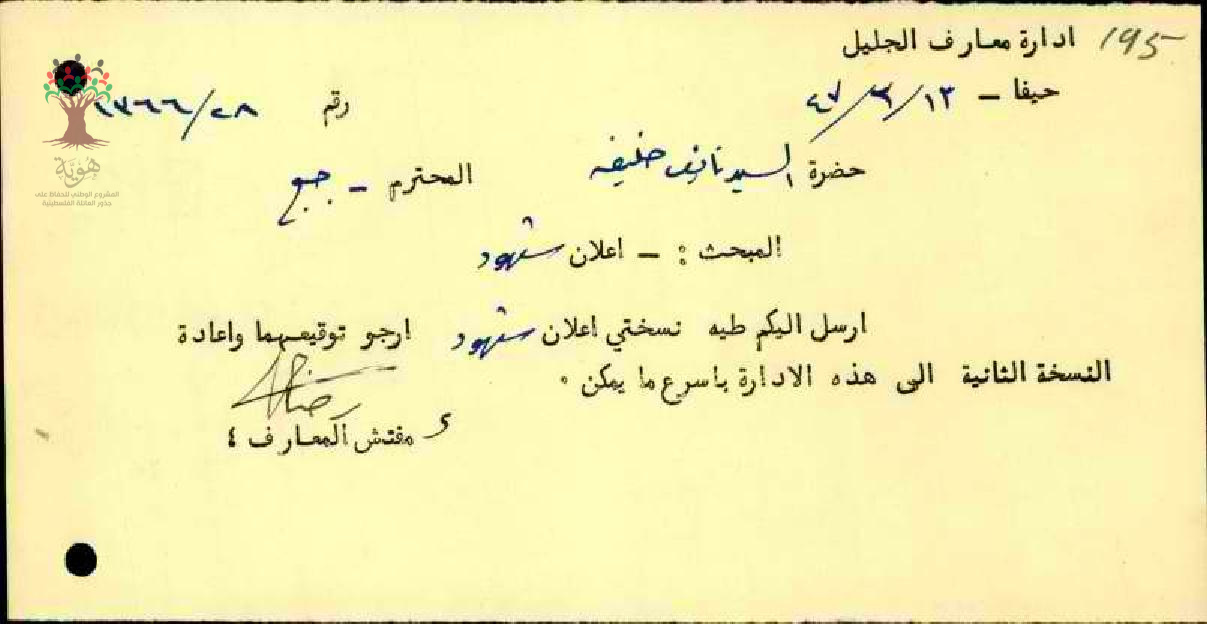 195
ادارة معارف الجليل
حيفا - ١٣/٣/٤٧
رقم ١٣٦٦/٢٨
حضرة السيد نايف خليفه المحترم - جبع
المبحث : - اعلان شهود
ارسل اليكم طيه نسختي اعلان شهود ارجو توقيعهما واعادة
النسخة الثانية الى هذه الادارة باسرع ما يمكن ٠
مفتش المعارف ٤
هُوِيَّة
المشروع الوطني للحفاظ على
جذور العائلة الفلسطينية